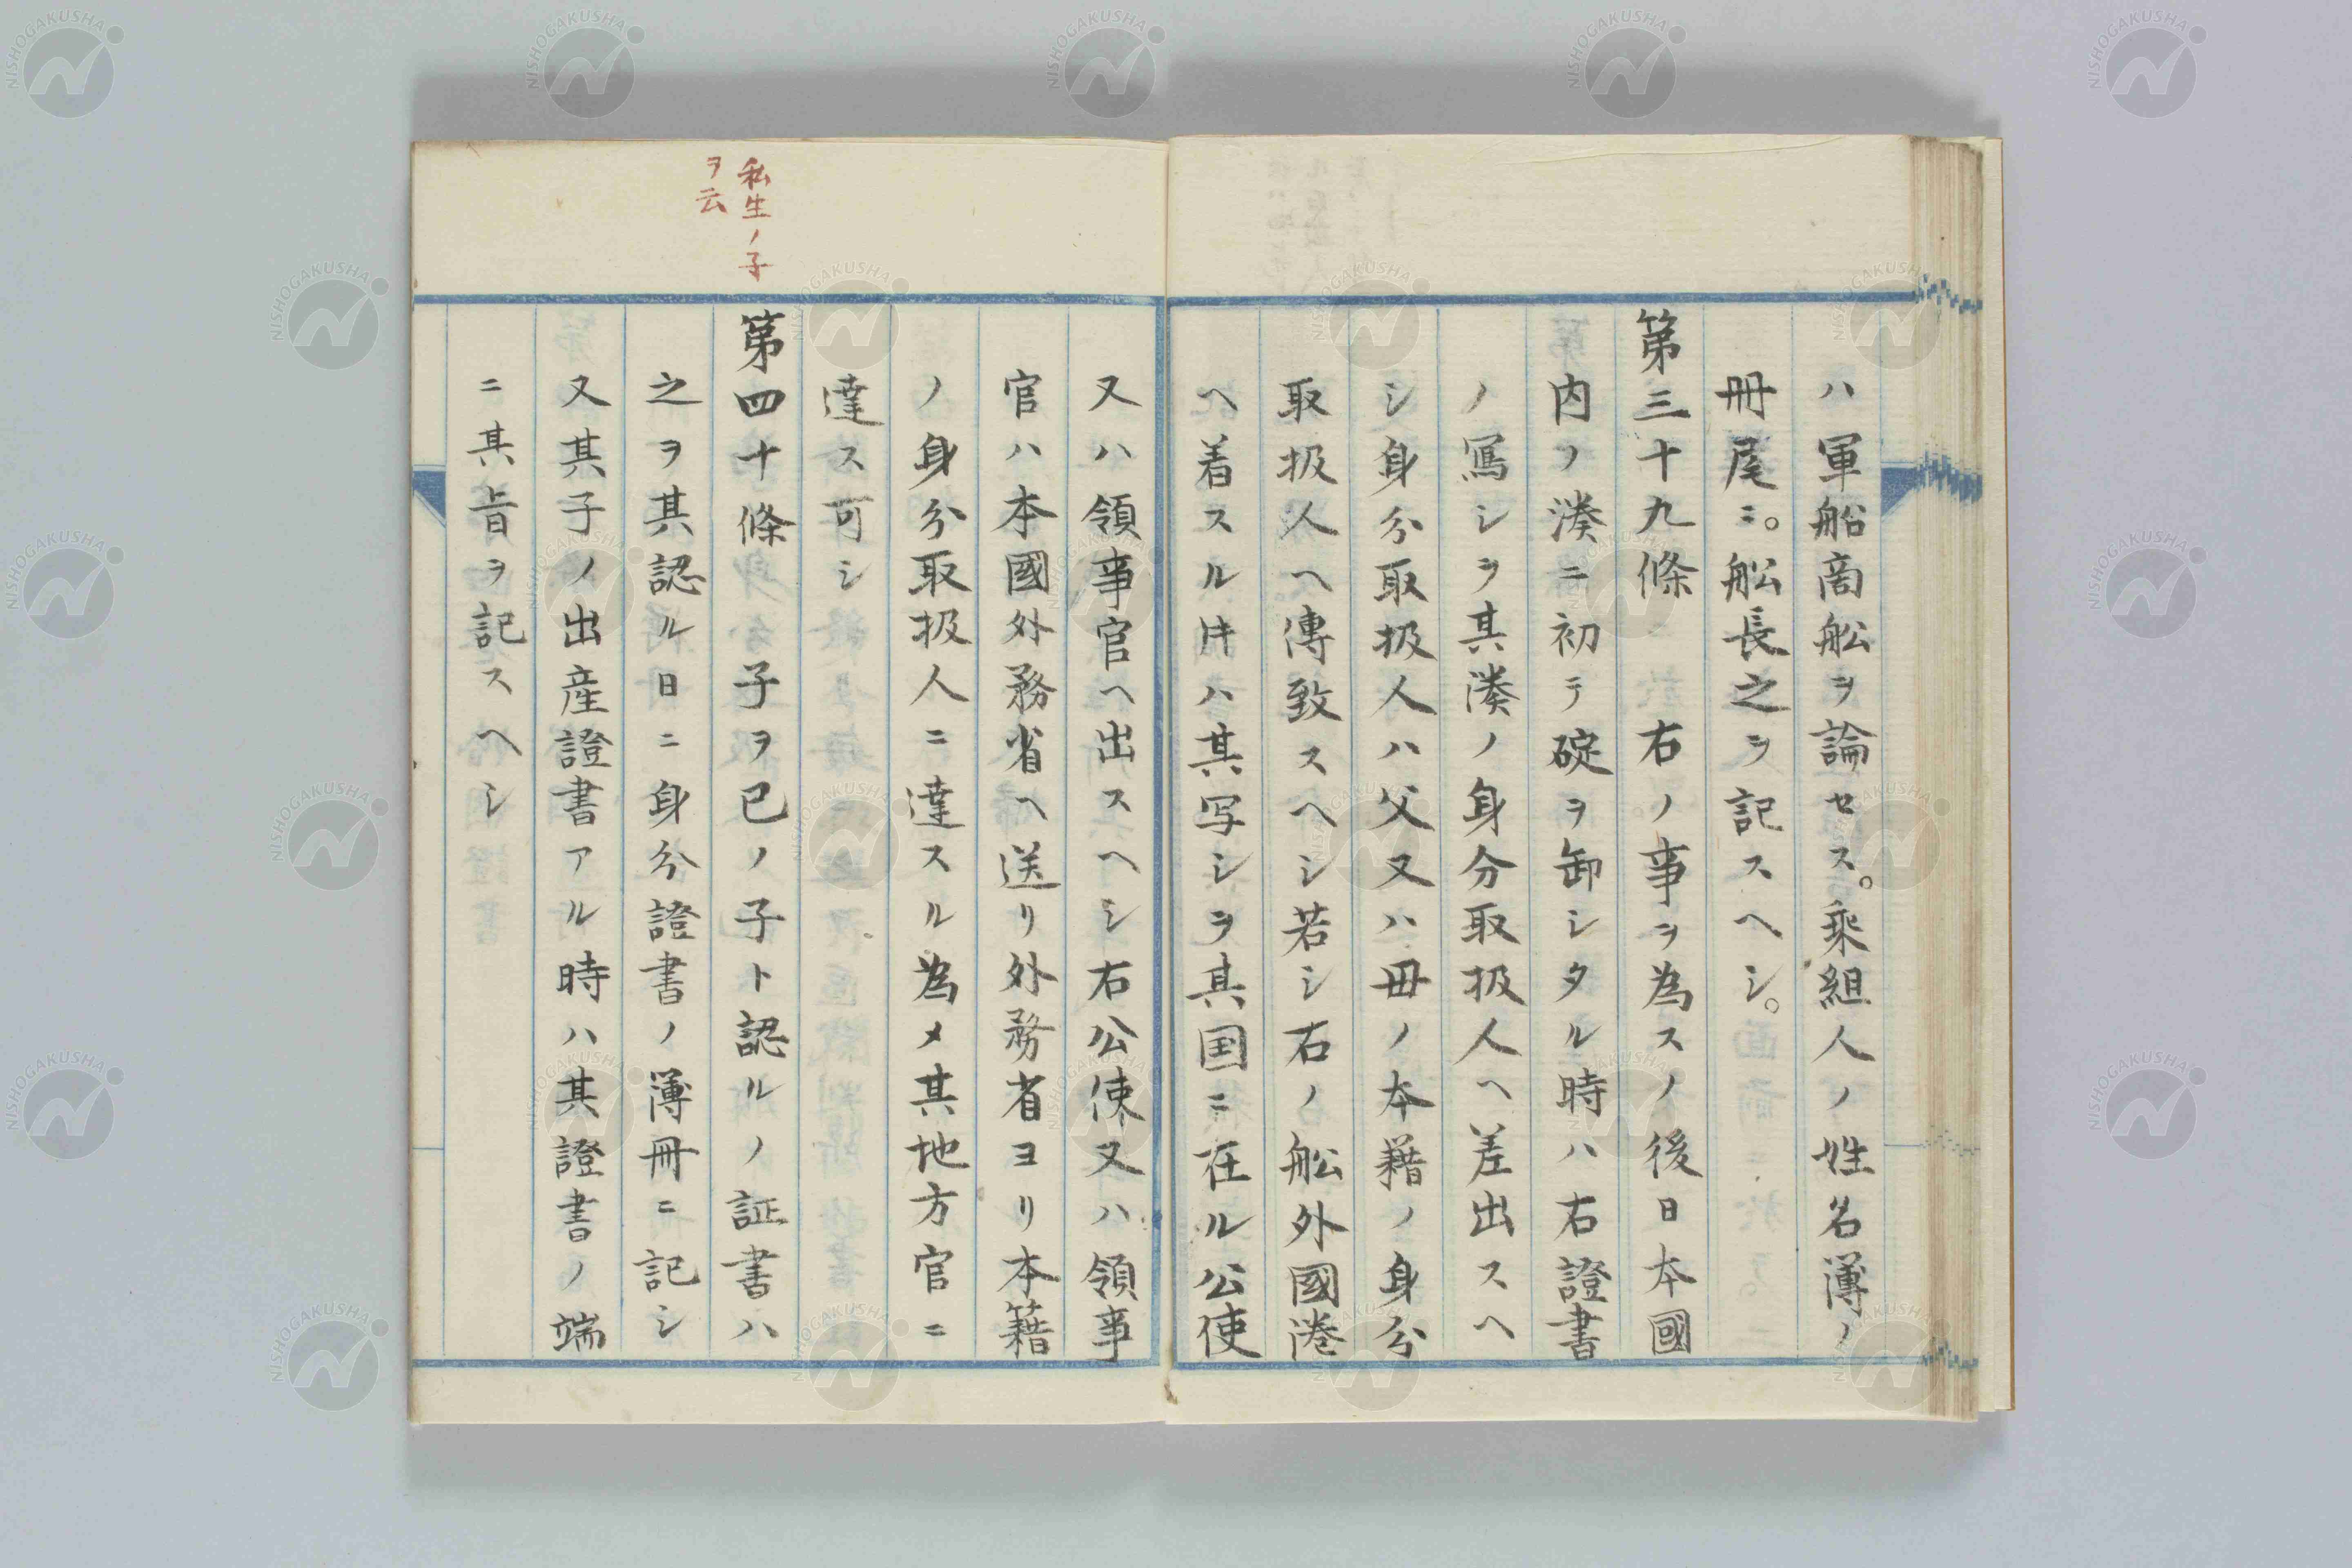 ハ軍船商舩ヲ論セス。乘組人ノ姓名簿ノ
冊尾ニ。舩長之ヲ記スヘシ。
第三十九條　右ノ事ヲ為スノ後日本國
内ノ湊ニ初テ碇ヲ卸シタル時ハ右證書
ノ寫シヲ其湊ノ身分取扱人ヘ差出スヘ
シ身分取扱人ハ父又ハ毋ノ本籍ノ身分
取扱人ヘ傳致スヘシ若シ右ノ舩外國港
ヘ着スル井ハ其写シヲ其国ニ在ル公使
又ハ領事官ヘ出スヘシ右公使又ハ領事
官ハ本國外務省ヘ送リ外務省ヨリ本籍
ノ身分取扱人ニ達スル為メ其地方官ニ
達ス可シ
私生ノ子
ヲ云
第四十條　子ヲ已ノ子ト認ルノ証書ハ
之ヲ其認ル日ニ身分證書ノ簿冊ニ記シ
又其子ノ出産證書アル時ハ其證書ノ端
ニ其旨ヲ記スヘシ
NISHOGAKUSHA